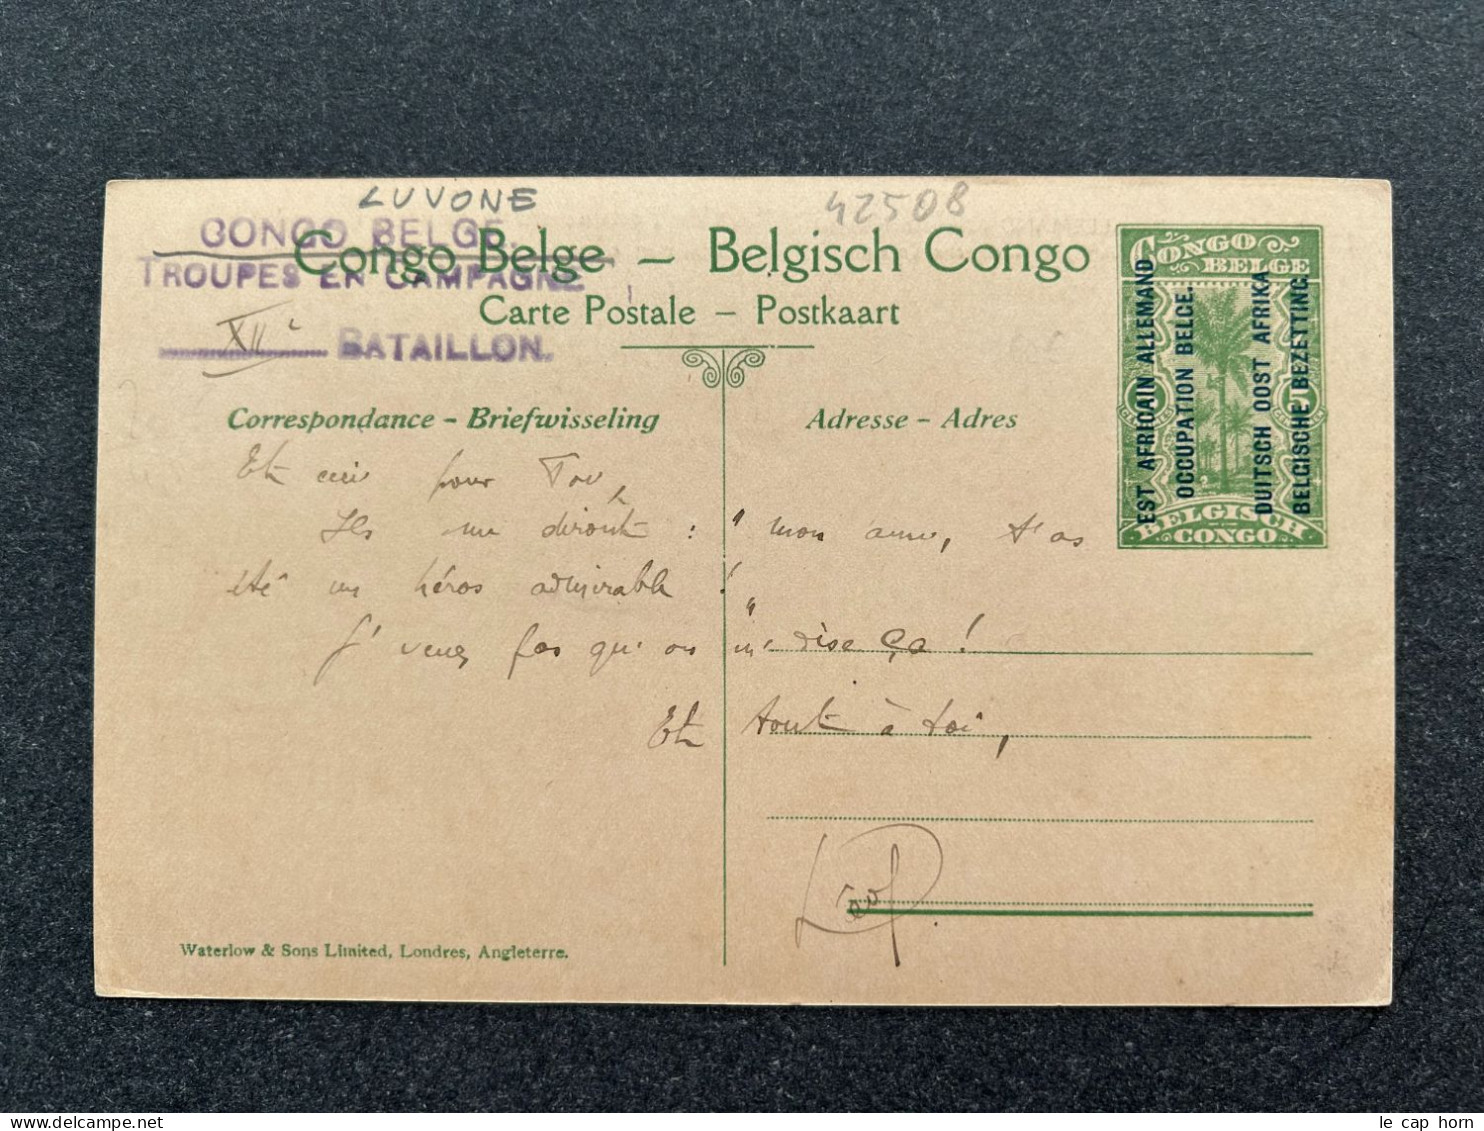 LUVONE
42508
CONGO BELGE.
TROUPES EN CAMPAGNE
XIIe
BATAILLON.
Congo Belge – Belgisch Congo
Carte Postale – Postkaart
Correspondance – Briefwisseling
Adresse – Adres
CONGO BELGE
EST AFRICAIN ALLEMAND
OCCUPATION BELGE.
DUITSCH OOST AFRIKA
BELGISCHE BEZETTING.
5
5
BELGISCH CONGO
Et ceci pour Toi,
Ils me diront : " mon ami, t'as
été un héros admirable ! "
J' veux pas qu'on m' dise ça !
Et tout à toi,
Léop.
Waterlow & Sons Limited, Londres, Angleterre.
le cap horn